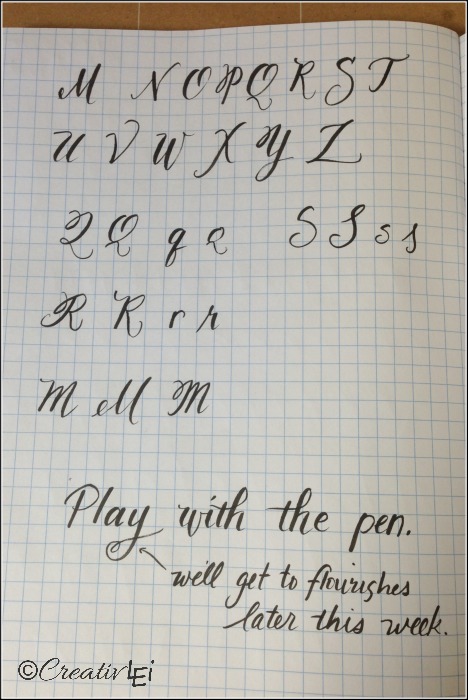 M N O P Q R S T
U V W X Y Z
Q Q q q S S s s
R R r r
M M M
Play with the pen.
we'll get to flourishes
later this week.
©CreativLEi